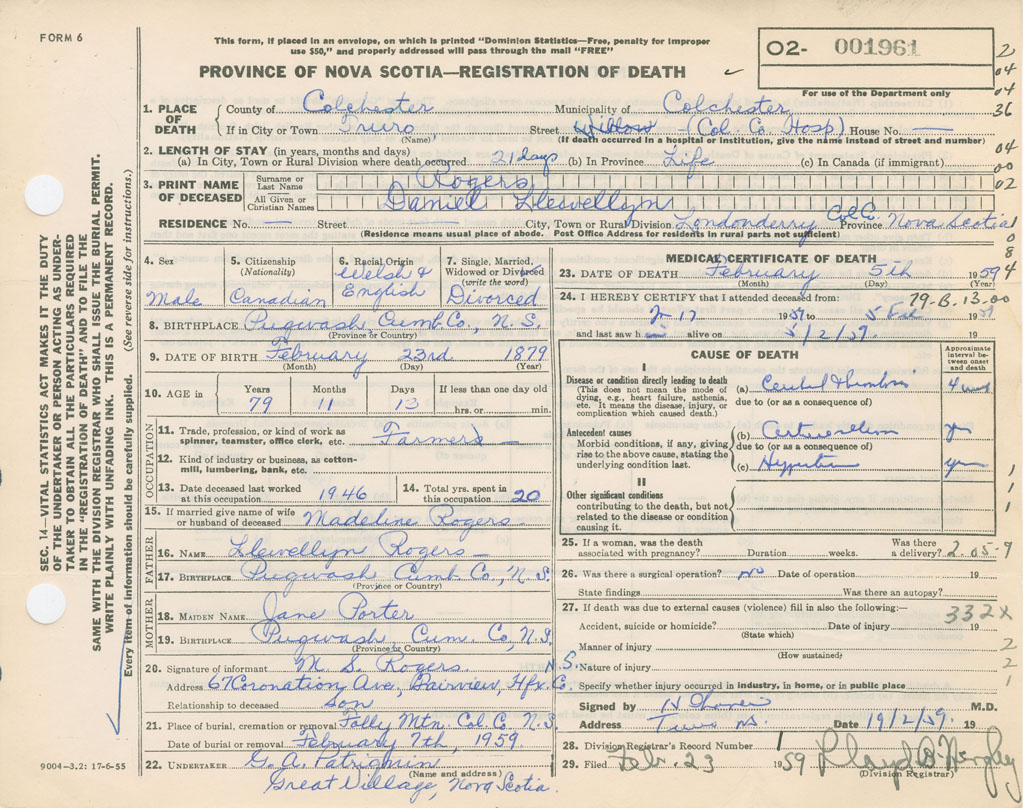 FORM 6
This form, if placed in an envelope, on which is printed "Dominion Statistics—Free, penalty for improper
use $50," and properly addressed will pass through the mail "FREE"
PROVINCE OF NOVA SCOTIA—REGISTRATION OF DEATH
02- 001961
For use of the Department only
2
04
04
36
04
00
02
1. PLACE OF DEATH
County of Colchester Municipality of Colchester
If in City or Town Truro, Street Willow - (Col. Co. Hosp) House No. —
(Name) (If death occurred in a hospital or institution, give the name instead of street and number)
2. LENGTH OF STAY (in years, months and days)
(a) In City, Town or Rural Division where death occurred 21 days (b) In Province Life (c) In Canada (if immigrant)
3. PRINT NAME OF DECEASED
Surname or Last Name Rogers
All Given or Christian Names Daniel Llewellyn
RESIDENCE No. — Street — City, Town or Rural Division Londonderry Col. C. Province Nova Scotia
(Residence means usual place of abode. Post Office Address for residents in rural parts not sufficient)
1
0
8
4
4. Sex Male
5. Citizenship (Nationality) Canadian
6. Racial Origin Welsh & English
7. Single, Married, Widowed or Divorced (write the word) Divorced
8. BIRTHPLACE Pugwash, Cumb. Co., N.S.
(Province or Country)
9. DATE OF BIRTH February 23rd 1879
(Month) (Day) (Year)
10. AGE in Years 79 Months 11 Days 13 If less than one day old hrs. or min.
OCCUPATION
11. Trade, profession, or kind of work as spinner, teamster, office clerk, etc. Farmer
12. Kind of industry or business, as cotton-mill, lumbering, bank, etc.
13. Date deceased last worked at this occupation 1946
14. Total yrs. spent in this occupation 20
15. If married give name of wife or husband of deceased Madeline Rogers
FATHER
16. NAME Llewellyn Rogers
17. BIRTHPLACE Pugwash Cumb. Co., N.S.
(Province or Country)
MOTHER
18. MAIDEN NAME Jane Porter
19. BIRTHPLACE Pugwash, Cum. Co, N.S.
(Province or Country)
20. Signature of informant M. S. Rogers
Address 67 Coronation Ave, Fairview, Hfx. C. N.S.
Relationship to deceased son
21. Place of burial, cremation or removal Folly Mtn. Col. C. N.S.
Date of burial or removal February 7th, 1959.
22. UNDERTAKER G. A.
(Name and address)
Great Village, Nova Scotia.
MEDICAL CERTIFICATE OF DEATH
23. DATE OF DEATH February 5th 1959
(Month) (Day)
24. I HEREBY CERTIFY that I attended deceased from: 79-B-13-00
1959 to 5 Feb 1959
and last saw h alive on 5/2/59. 19
CAUSE OF DEATH
Approximate interval between onset and death
I
Disease or condition directly leading to death
(This does not mean the mode of dying, e.g., heart failure, asthenia, etc. It means the disease, injury, or complication which caused death.)
(a) Cerebral Thrombosis 4
due to (or as a consequence of)
Antecedent causes
Morbid conditions, if any, giving rise to the above cause, stating the underlying condition last.
(b)
due to (or as a consequence of)
(c) Hypertension yrs
II
Other significant conditions
contributing to the death, but not related to the disease or condition causing it.
1
1
1
1
25. If a woman, was the death associated with pregnancy? Duration weeks. Was there a delivery? 2-05-9
26. Was there a surgical operation? No Date of operation 19
State findings Was there an autopsy?
27. If death was due to external causes (violence) fill in also the following:— 332X
Accident, suicide or homicide? Date of injury 19
(State which)
Manner of injury 2
(How sustained)
Nature of injury 2
Specify whether injury occurred in industry, in home, or in public place 1
Signed by M.D.
Address Truro NS. Date 19/2/59. 19
28. Division Registrar's Record Number 1
29. Filed Feb. 23 1959 Lloyd
(Division Registrar)
9004—3.2: 17-6-55
SEC. 14—VITAL STATISTICS ACT MAKES IT THE DUTY
OF THE UNDERTAKER OR PERSON ACTING AS UNDER-
TAKER TO OBTAIN ALL THE PARTICULARS REQUIRED
IN THE "REGISTRATION OF DEATH" AND TO FILE THE
SAME WITH THE DIVISION REGISTRAR WHO SHALL ISSUE THE BURIAL PERMIT.
WRITE PLAINLY WITH UNFADING INK. THIS IS A PERMANENT RECORD.
Every item of information should be carefully supplied. (See reverse side for instructions.)